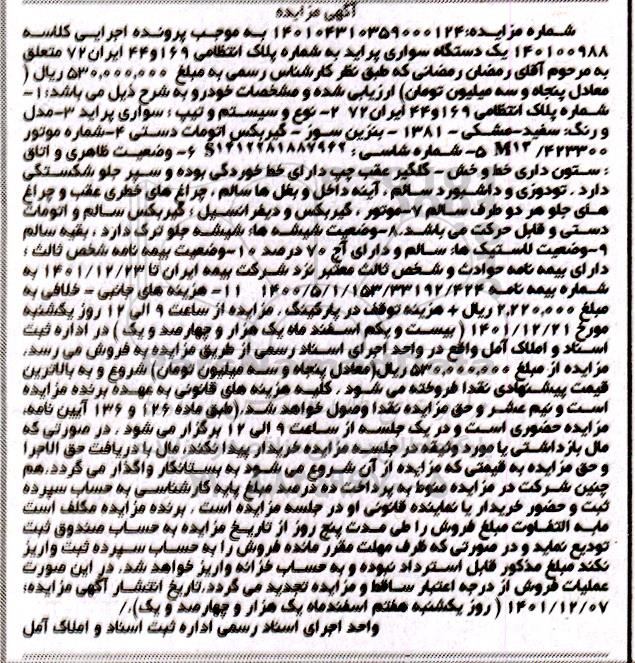 آگهی مزایده
شماره مزایده:۱۴۰۱۰۴۳۱۰۳۵۹۰۰۰۱۲۴ به موجب پرونده اجرایی کلاسه
۱۴۰۱۰۰۹۸۸ یک دستگاه سواری پراید به شماره پلاک انتظامی ۱۶۹و۴۴ ایران۷۲ متعلق
به مرحوم آقای رمضان رمضانی که طبق نظر کارشناس رسمی به مبلغ ۵۳۰,۰۰۰,۰۰۰ ریال (
معادل پنجاه و سه میلیون تومان) ارزیابی شده و مشخصات خودرو به شرح ذیل می باشد:۱-
شماره پلاک انتظامی ۱۶۹و۴۴ ایران۷۲ ۲- نوع و سیستم و تیپ : سواری پراید ۳-مدل
و رنگ: سفید-مشکی - ۱۳۸۱ - بنزین سوز - گیربکس اتومات دستی ۴-شماره موتور
۴۲۳۳۰۰/ M۱۳ ۵- شماره شاسی: S۱۴۱۲۲۸۱۸۸۷۹۶۲ ۶- وضعیت ظاهری و اتاق
: ستون داری خط و خش - گلگیر عقب چپ دارای خط خوردگی بوده و سپر جلو شکستگی
دارد . تودوزی و داشبورد سالم ، آینه داخل و بغل ها سالم ، چراغ های خطری عقب و چراغ
های جلو هر دو طرف سالم ۷-موتور ، گیربکس و دیفرانسیل : گیربکس سالم و اتومات
دستی و قابل حرکت می باشد.۸-وضعیت شیشه ها: شیشه جلو ترک دارد ، بقیه سالم
۹-وضعیت لاستیک ها: سالم و دارای آج ۷۰ درصد ۱۰-وضعیت بیمه نامه شخص ثالث :
دارای بیمه نامه حوادث و شخص ثالث معتبر نزد شرکت بیمه ایران تا ۱۴۰۱/۱۲/۲۳ به
شماره بیمه نامه ۱۴۰۰/۵/۱/۱۵۳/۳۳۱۹۲/۴۲۴ ۱۱- هزینه های جانبی - خلافی به
مبلغ ۲,۲۲۰,۰۰۰ ریال + هزینه توقف در پارکینگ . مزایده از ساعت ۹ الی ۱۲ روز یکشنبه
مورخ ۱۴۰۱/۱۲/۲۱ ( بیست و یکم اسفند ماه یک هزار و چهارصد و یک ) در اداره ثبت
اسناد و املاک آمل واقع در واحد اجرای اسناد رسمی از طریق مزایده به فروش می رسد.
مزایده از مبلغ ۵۳۰,۰۰۰,۰۰۰ ریال(معادل پنجاه و سه میلیون تومان) شروع و به بالاترین
قیمت پیشنهادی نقدا فروخته می شود . کلیه هزینه های قانونی به عهده برنده مزایده
است و نیم عشر و حق مزایده نقدا وصول خواهد شد.(طبق ماده ۱۲۶ و ۱۳۶ آیین نامه،
مزایده حضوری است و در یک جلسه از ساعت ۹ الی ۱۲ برگزار می شود . در صورتی که
مال بازداشتی یا مورد وثیقه در جلسه مزایده خریدار پیدا نکند، مال با دریافت حق الاجرا
و حق مزایده به قیمتی که مزایده از آن شروع می شود به بستانکار واگذار می گردد.هم
چنین شرکت در مزایده منوط به پرداخت ده درصد مبلغ پایه کارشناسی به حساب سپرده
ثبت و حضور خریدار یا نماینده قانونی او در جلسه مزایده است . برنده مزایده مکلف است
مابه التفاوت مبلغ فروش را طی مدت پنج روز از تاریخ مزایده به حساب صندوق ثبت
تودیع نماید و در صورتی که ظرف مهلت مقرر مانده فروش را به حساب سپرده ثبت واریز
نکند مبلغ مذکور قابل استرداد نبوده و به حساب خزانه واریز خواهد شد. در این صورت
عملیات فروش از درجه اعتبار ساقط و مزایده تجدید می گردد.تاریخ انتشار آگهی مزایده:
۱۴۰۱/۱۲/۰۷ ( روز یکشنبه هفتم اسفندماه یک هزار و چهارصد و یک)./
واحد اجرای اسناد رسمی اداره ثبت اسناد و املاک آمل